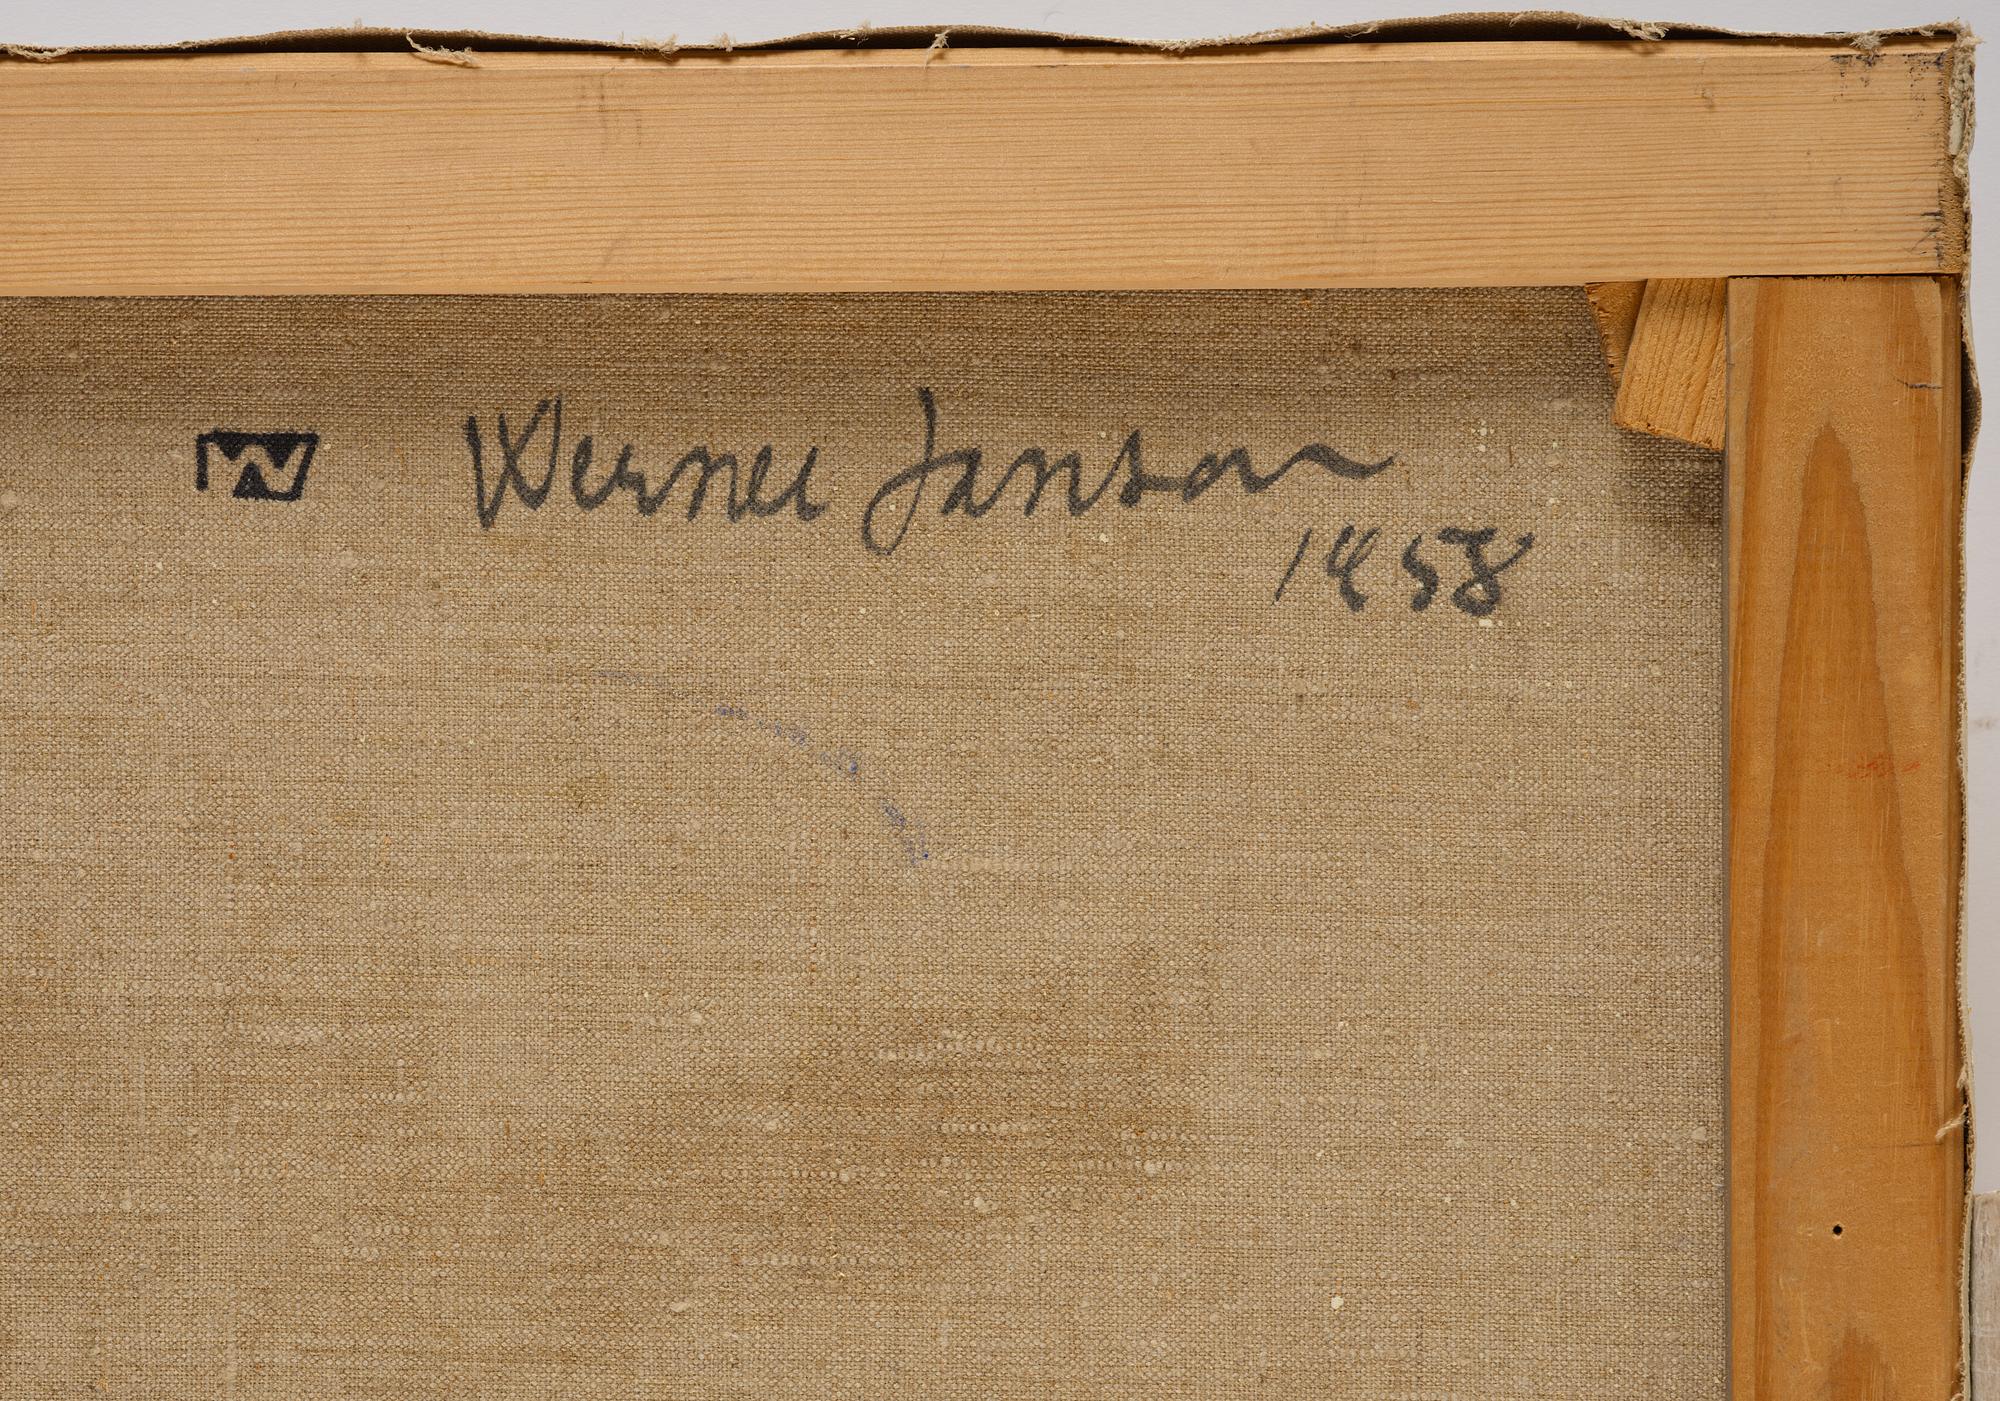 Werner Janson
1958